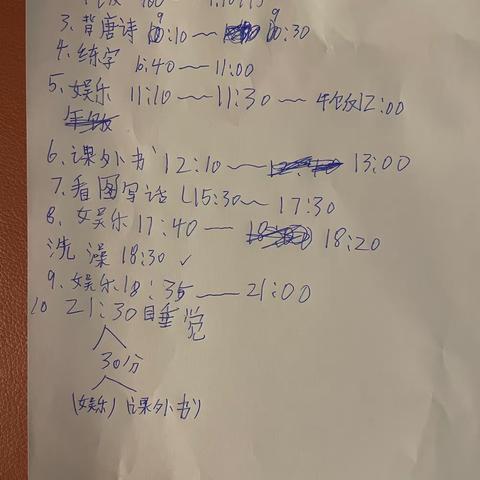 3、背唐诗 9:10 — 9:30
4、练字 10:40 — 11:00
5、娱乐 11:10 — 11:30 — 午饭12:00
6、课外书 12:10 — 13:00
7、看图写话 15:30 — 17:30
8、娱乐 17:40 — 18:20
洗澡 18:30 ✓
9、娱乐18:35 — 21:00
10 21:30睡觉
30分
(娱乐) (课外书)